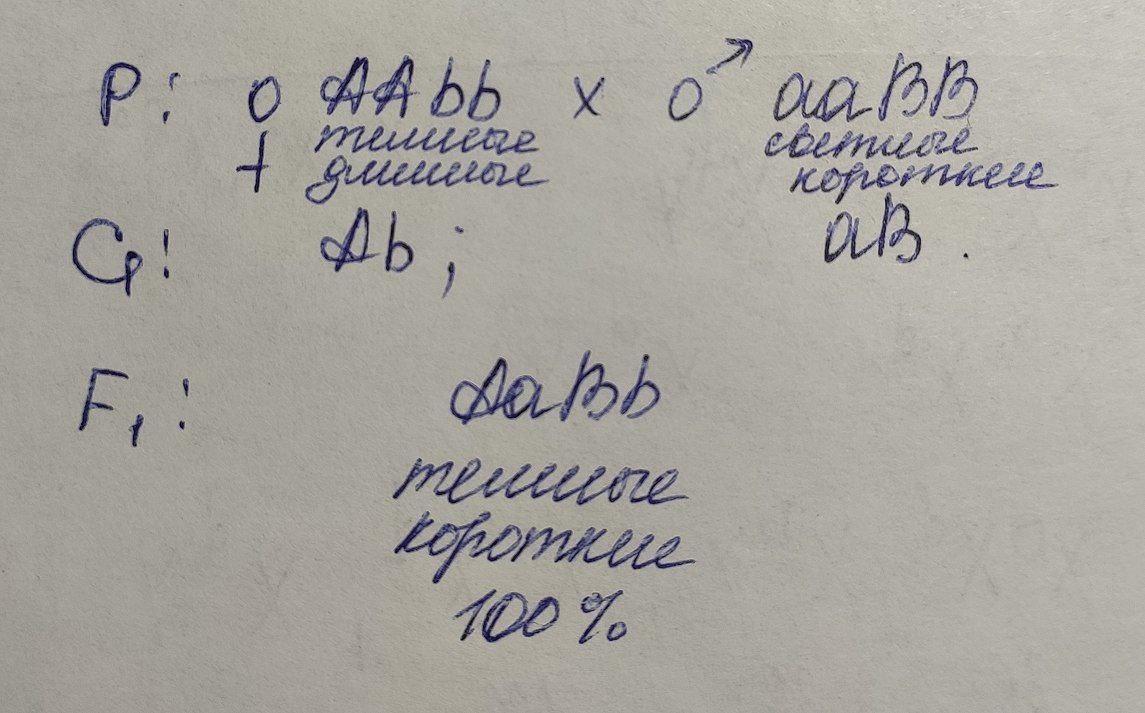 P: ♀ AAbb x ♂ aaBB
темные светлые
длинные короткие
G: Ab; aB.
F1: AaBb
темные
короткие
100%